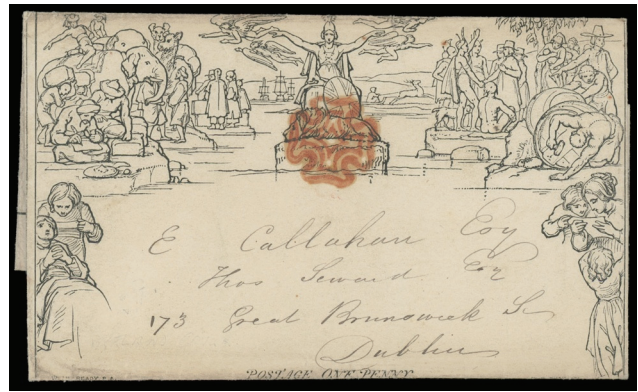 E Callahan Esq
Thos Seward Esq
173 Great Brunswick St
Dublin
POSTAGE ONE PENNY